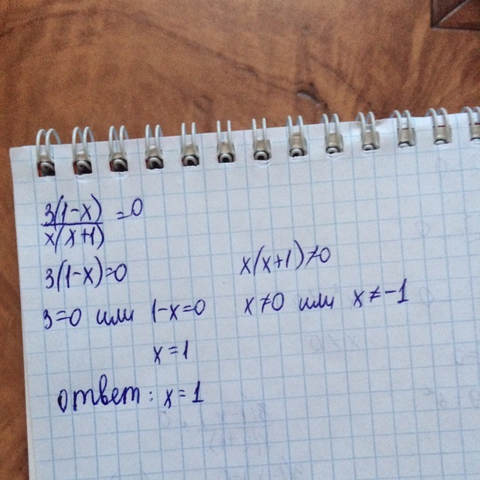 3(1-x)/x(x+1) =0
3(1-x)=0 x(x+1)≠0
3=0 или 1-x=0 x≠0 или x≠-1
x=1
ответ: x=1